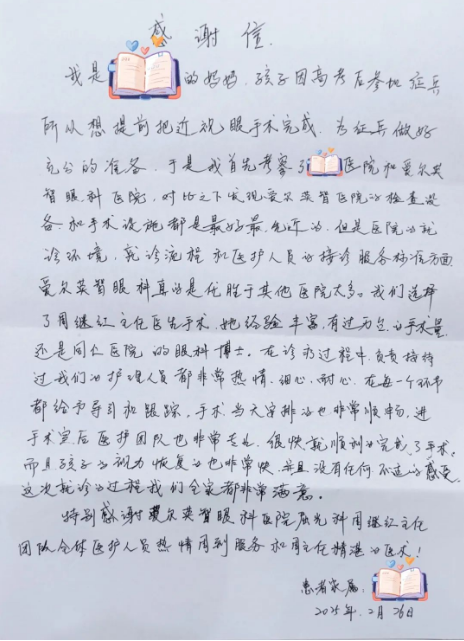 感谢信
我是 的妈妈，孩子因高考后参加征兵
所以想提前把近视眼手术完成，为征兵做好
充分的准备，于是我首先考察了 医院和爱尔英
智眼科医院，对比之下发现爱尔英智医院的检查设
备和手术设施都是最好最先进的，但是医院的就
诊环境，就诊流程和医护人员的接诊服务标准方面
爱尔英智眼科真的是优胜于其他医院太多。我们选择
了周继红主任医生手术，她经验丰富，有过万台的手术量
还是同仁医院的眼科博士。在诊疗过程中，负责接待
过我们的护理人员都非常热情、细心、耐心，在每一个环节
都给予导引和跟踪，手术当天安排的也非常顺畅，进
手术室后医护团队也非常专业，很快就顺利的完成了手术。
而且孩子的视力恢复的也非常快，并且没有任何不适的感受。
这次就诊的过程我们全家都非常满意。
特别感谢爱尔英智眼科医院屈光科周继红主任
团队全体医护人员热情周到服务和周主任精湛的医术！
患者家属：
2025年.2月26日